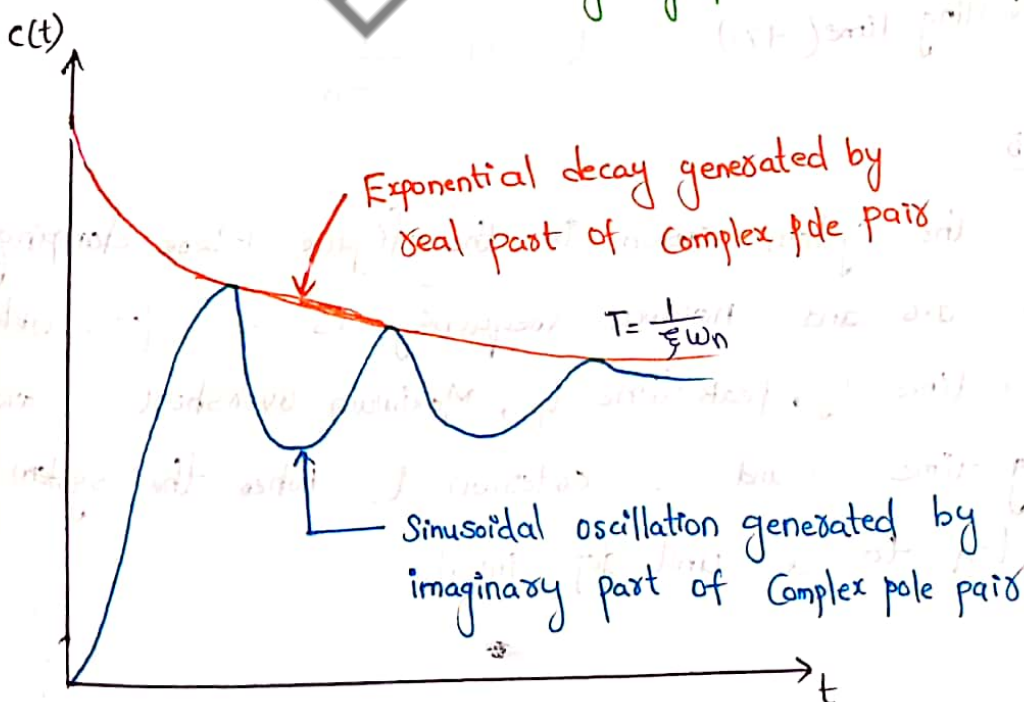 c(t)
Exponential decay generated by
real part of complex pole pair
T= 1/ξωn
Sinusoidal oscillation generated by
imaginary part of Complex pole pair
t